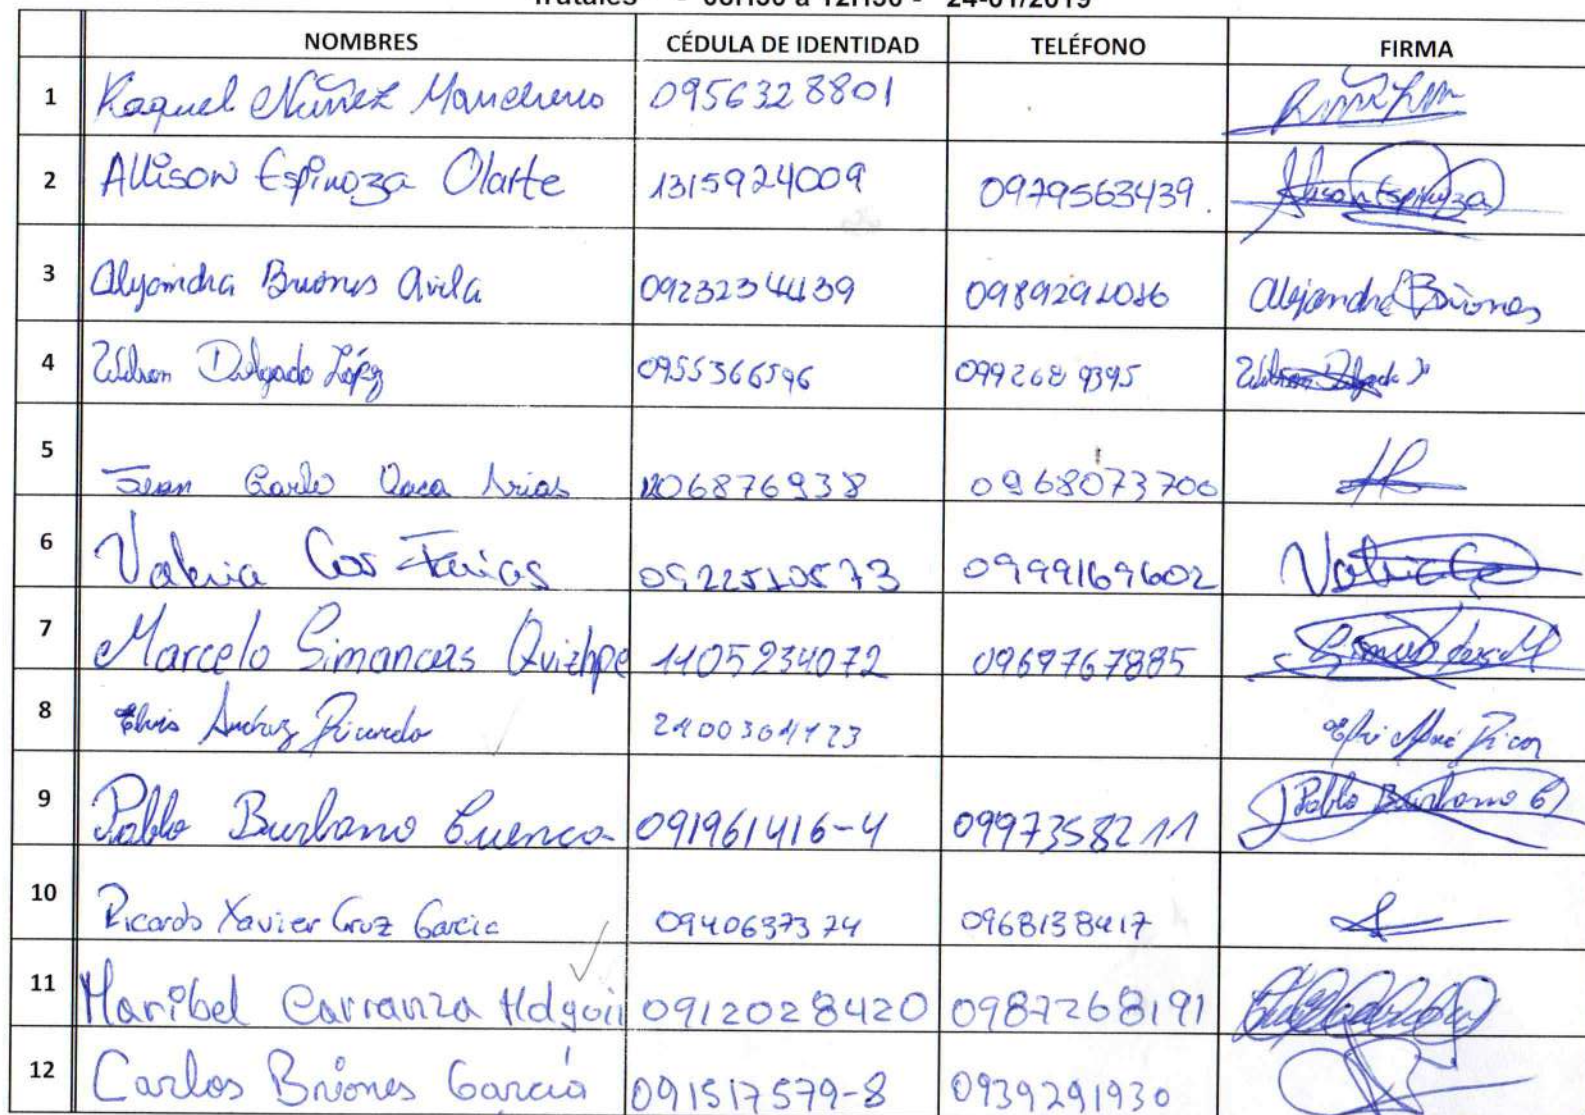 frutales - 08h30 a 12h30 - 24-01/2019
NOMBRES CÉDULA DE IDENTIDAD TELÉFONO FIRMA
1 Raquel Núñez Mancheno 0956328801
2 Allison Espinoza Olarte 1315924009 0979563439. Allison Espinoza
3 Alejandra Briones Avila 0923234439 Alejandra Briones
4 Wilson Delgado López 0955366596 0992689395 Wilson Delgado
5 Jean Carlo Vaca Arias 0968073700
6 Valeria Cos Farias 0922510573 0999169602 Valeria
7 Marcelo Simancas Quizhpe 1105234072 0969767885
8 Elvis Ricardo
9 Pablo Burbano Cuenca 091961416-4 0997358211 Pablo Burbano C
10 Ricardo Xavier Cruz Garcia 0940637374 0968138417
11 Maribel Carranza 0912028420 0987268191
12 Carlos Briones García 091517579-8 0939291930